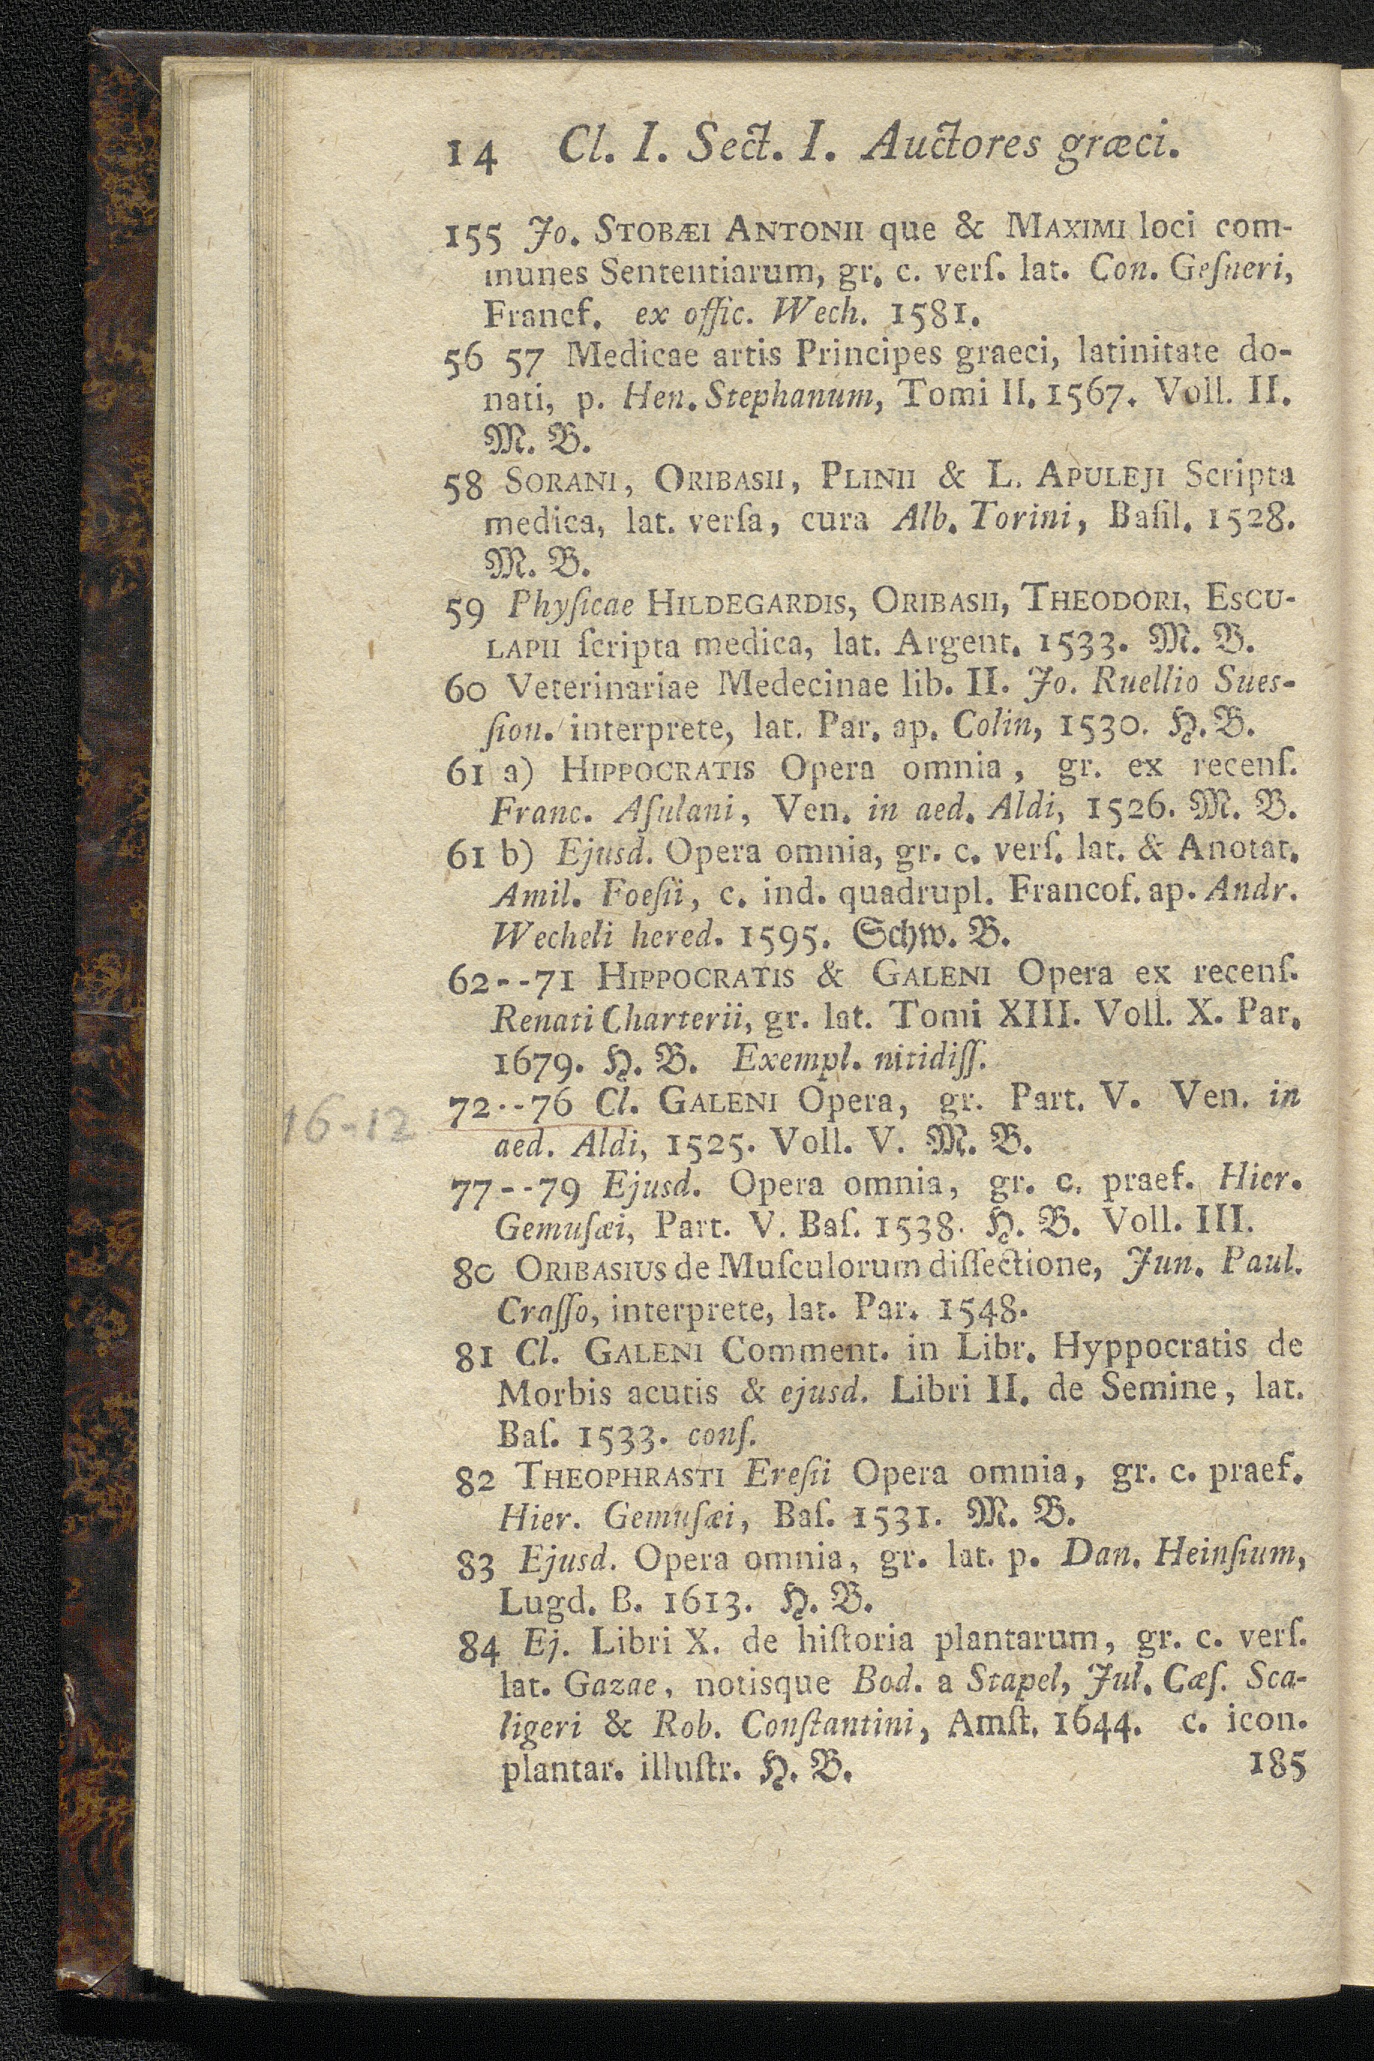 14 Cl. I. Sect. I. Auctores græci.
155 Jo. STOBÆI ANTONII que & MAXIMI loci com-
munes Sententiarum, gr. c. verſ. lat. Con. Geſneri,
Francf. ex offic. Wech. 1581.
56 57 Medicae artis Principes graeci, latinitate do-
nati, p. Hen. Stephanum, Tomi II. 1567. Voll. II.
M. B.
58 SORANI, ORIBASII, PLINII & L. APULEJI Scripta
medica, lat. verſa, cura Alb. Torini, Baſil. 1528.
M. B.
59 Phyſicae HILDEGARDIS, ORIBASII, THEODORI, ESCU-
LAPII ſcripta medica, lat. Argent. 1533. M. B.
60 Veterinariae Medecinae lib. II. Jo. Ruellio Sues-
ſion. interprete, lat. Par. ap. Colin, 1530. H. B.
61 a) HIPPOCRATIS Opera omnia, gr. ex recenſ.
Franc. Aſulani, Ven. in aed. Aldi, 1526. M. B.
61 b) Ejusd. Opera omnia, gr. c. verſ. lat. & Anotat.
Amil. Foeſii, c. ind. quadrupl. Francof. ap. Andr.
Wecheli hered. 1595. Schw. B.
62--71 HIPPOCRATIS & GALENI Opera ex recenſ.
Renati Charterii, gr. lat. Tomi XIII. Voll. X. Par.
1679. H. B. Exempl. nitidiſſ.
16-12 72--76 Cl. GALENI Opera, gr. Part. V. Ven. in
aed. Aldi, 1525. Voll. V. M. B.
77--79 Ejusd. Opera omnia, gr. c. praef. Hier.
Gemuſæi, Part. V. Baſ. 1538. H. B. Voll. III.
80 ORIBASIUS de Muſculorum diſſectione, Jun. Paul.
Craſſo, interprete, lat. Par. 1548.
81 Cl. GALENI Comment. in Libr. Hyppocratis de
Morbis acutis & ejusd. Libri II. de Semine, lat.
Baſ. 1533. conſ.
82 THEOPHRASTI Ereſii Opera omnia, gr. c. praef.
Hier. Gemuſæi, Baſ. 1531. M. B.
83 Ejusd. Opera omnia, gr. lat. p. Dan. Heinſium,
Lugd. B. 1613. H. B.
84 Ej. Libri X. de hiſtoria plantarum, gr. c. verſ.
lat. Gazae, notisque Bod. a Stapel, Jul. Cæſ. Sca-
ligeri & Rob. Conſtantini, Amſt. 1644. c. icon.
plantar. illuſtr. H. B. 185